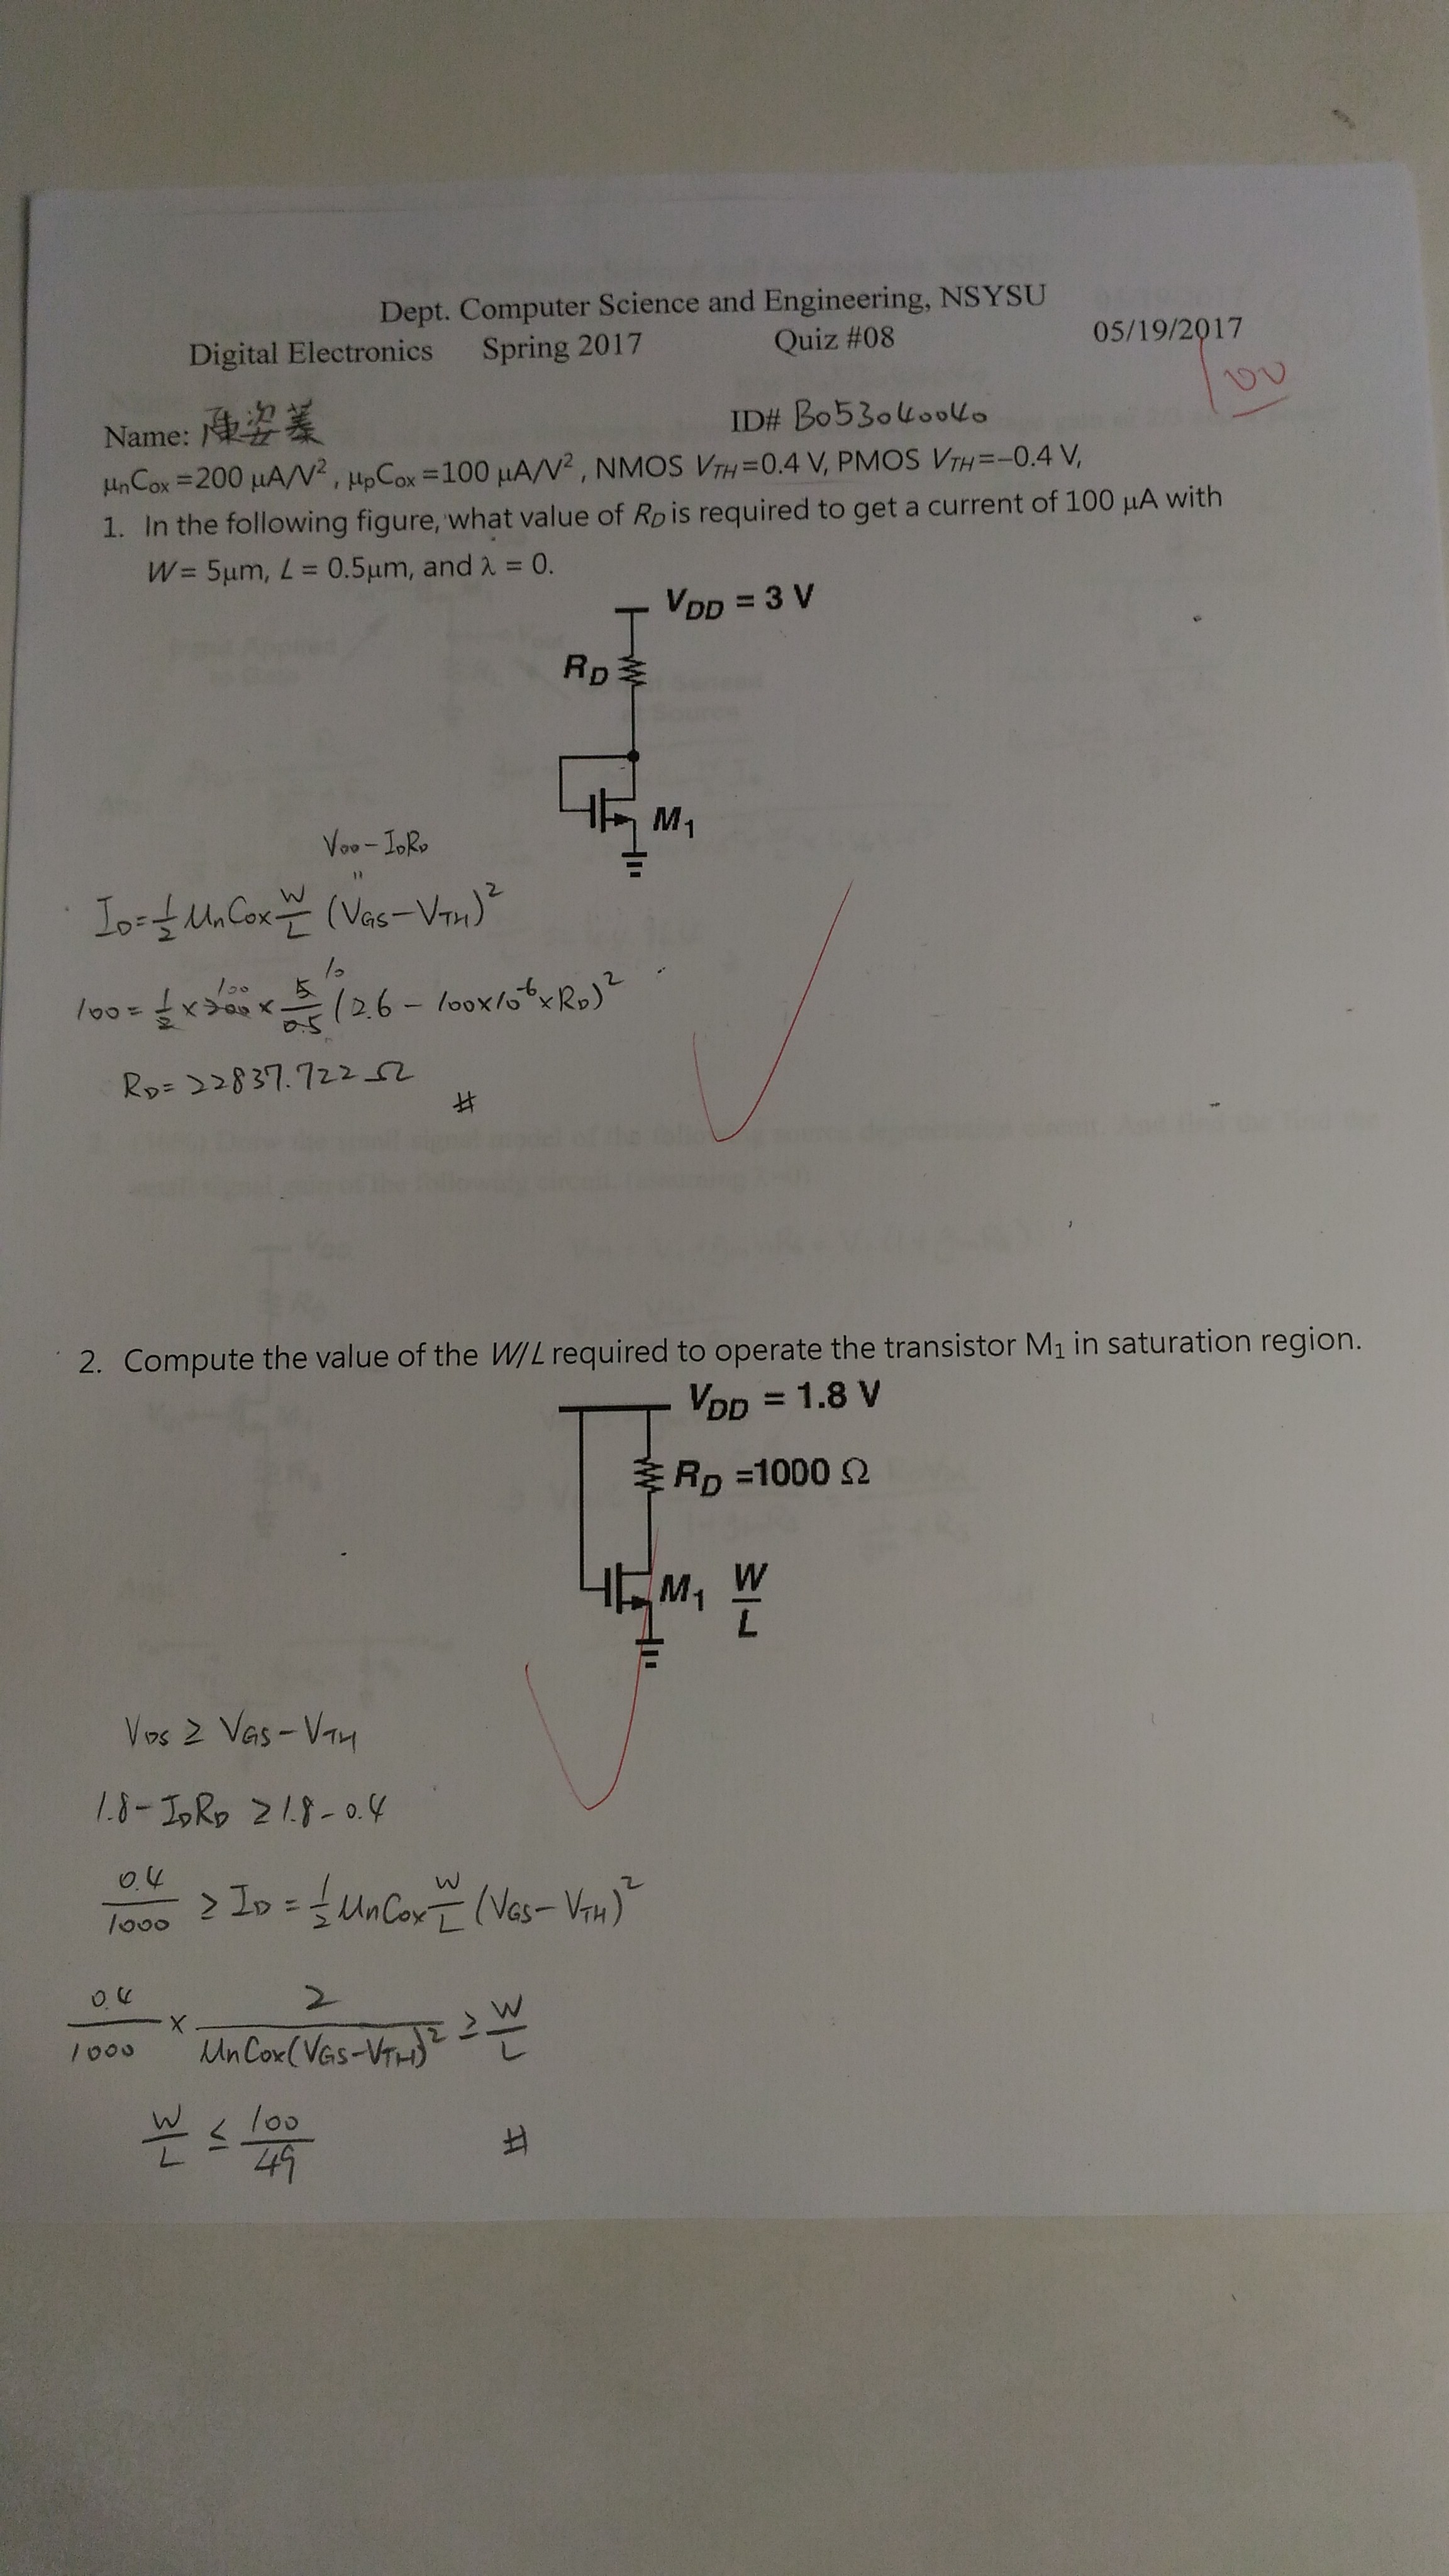 Dept. Computer Science and Engineering, NSYSU
Digital Electronics Spring 2017 Quiz #08 05/19/2017
100
Name: 陳姿蓁 ID# B053040040
μnCox =200 μA/V², μpCox =100 μA/V² , NMOS VTH=0.4 V, PMOS VTH=−0.4 V,
1. In the following figure, what value of RD is required to get a current of 100 μA with
W= 5μm, L = 0.5μm, and λ = 0.
VDD = 3 V
RD
M1
VDD − IDRD
"
ID = 1/2 UnCox W/L (VGS − VTH)²
100 10
100 = 1/2 × 200 × 5/0.5 (2.6 − 100×10⁻⁶×RD)²
RD = 22837.722 Ω #
2. Compute the value of the W/L required to operate the transistor M1 in saturation region.
VDD = 1.8 V
RD =1000 Ω
M1 W/L
VDS ≥ VGS − VTH
1.8 − IDRD ≥ 1.8 − 0.4
0.4/1000 ≥ ID = 1/2 UnCox W/L (VGS − VTH)²
0.4/1000 × 2/UnCox(VGS−VTH)² ≥ W/L
W/L ≤ 100/49 #